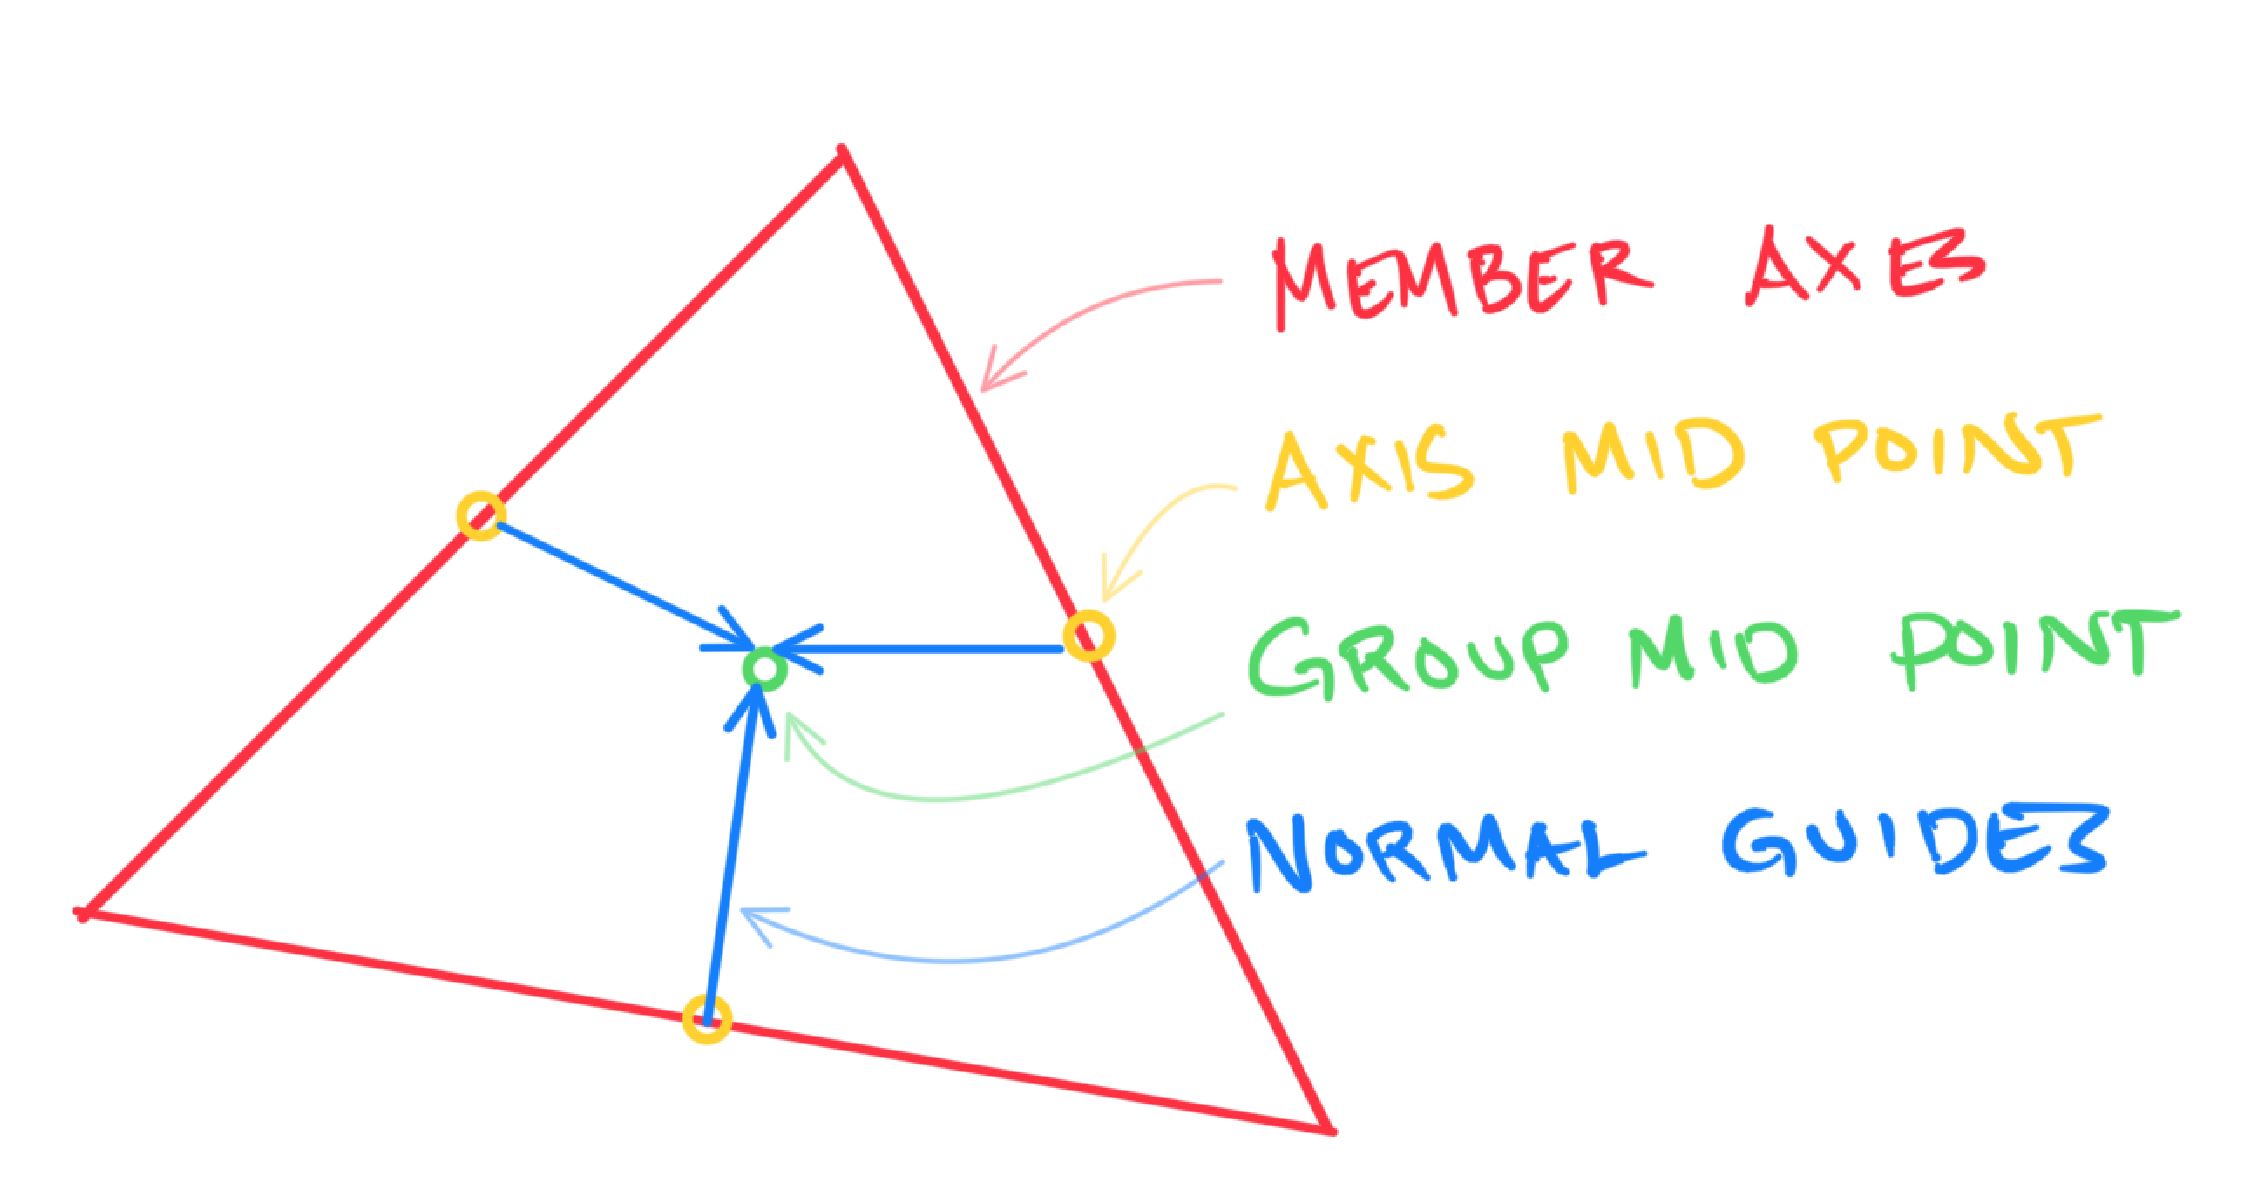 MEMBER AXES
AXIS MID POINT
GROUP MID POINT
NORMAL GUIDES